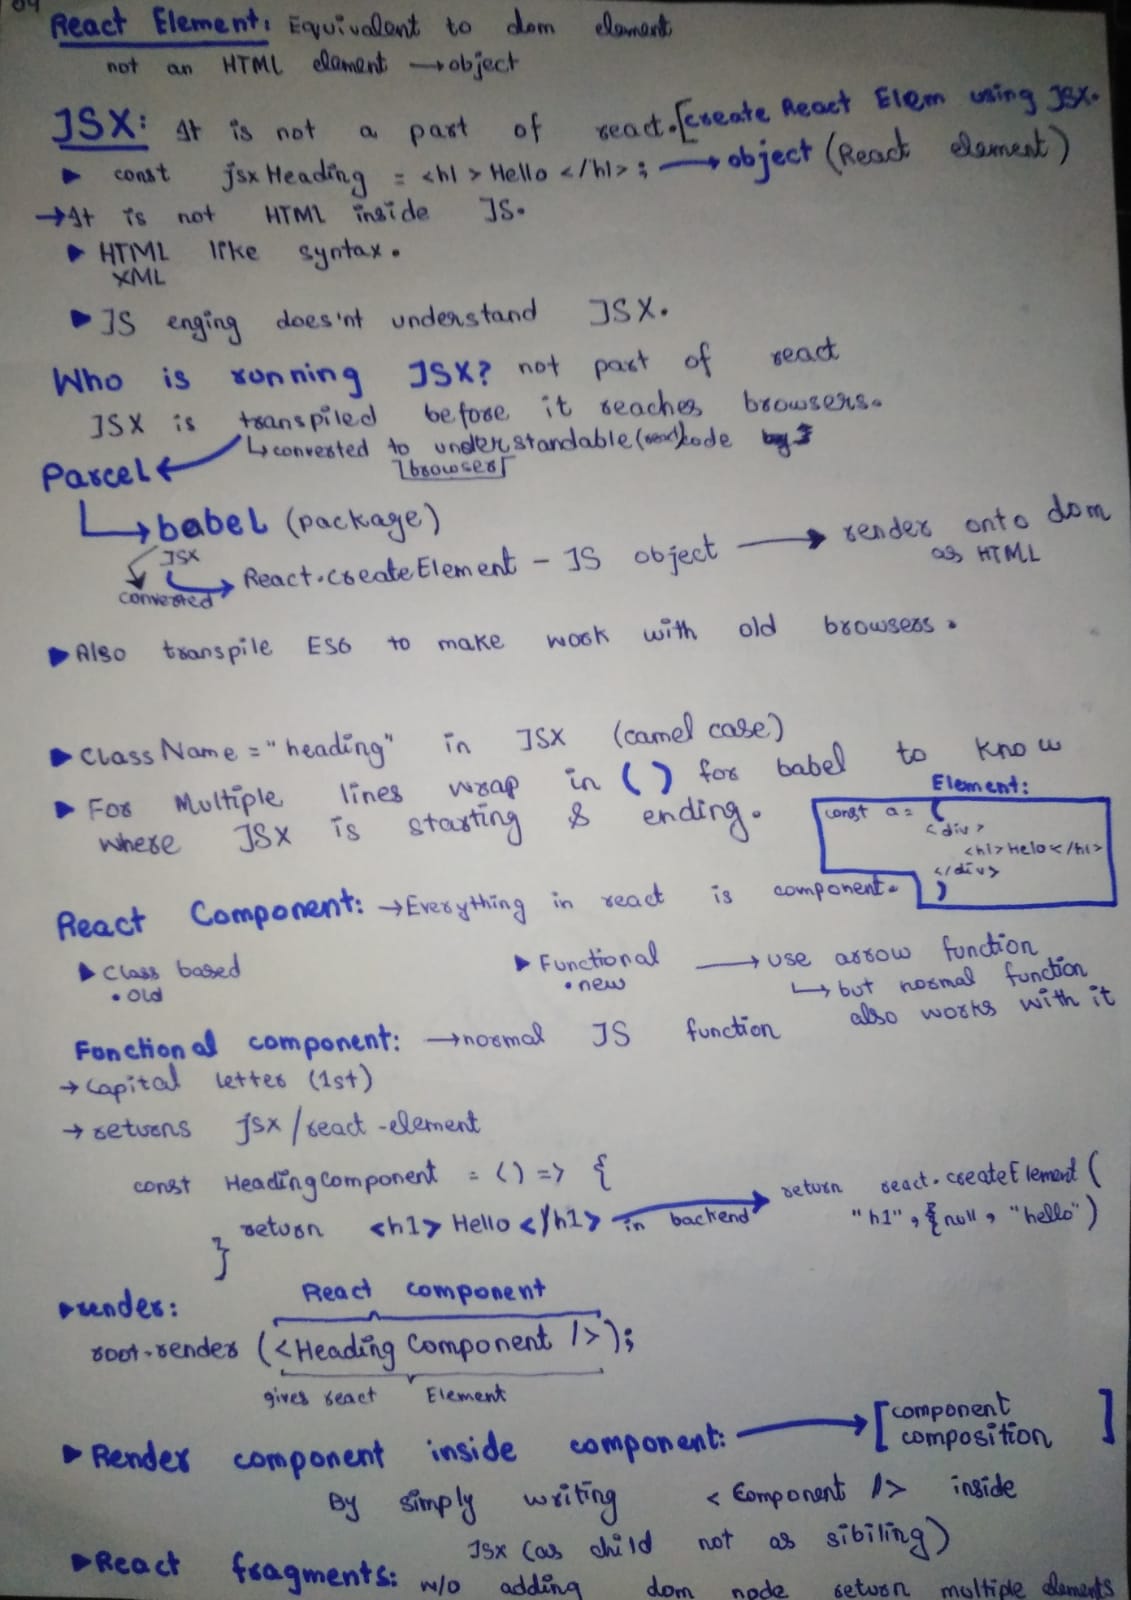 04
React Element: Equivalent to dom element
not an HTML element → object
JSX: It is not a part of react. [create React Elem using JSX.
▶ const jsxHeading = <h1> Hello </h1>; → object (React element)
→ It is not HTML inside JS.
▶ HTML like syntax.
XML
▶ JS enging does'nt understand JSX.
Who is running JSX? not part of react
JSX is transpiled before it reaches browsers.
↳ converted to understandable code
[browser]
Parcel ←
↳ babel (package)
JSX
converted
→ React.createElement - JS object → render onto dom
as HTML
▶ Also transpile ES6 to make work with old browsers.
▶ ClassName = "heading" in JSX (camel case)
▶ For Multiple lines wrap in ( ) for babel to know
where JSX is starting & ending.
Element:
const a = (
<div>
<h1> Helo </h1>
</div>
)
React Component: → Everything in react is component.
▶ Class based
• old
▶ Functional → use arrow function
• new
↳ but normal function
also works with it
Fonctional component: → normal JS function
→ Capital letter (1st)
→ returns jsx/react-element
const HeadingComponent = () => {
return <h1> Hello </h1> in backend → return react.createElement(
"h1", { null, "hello")
}
▶ render:
React component
root.render (<Heading Component />);
gives react Element
▶ Render component inside component: → [component
composition]
By simply writing < Component /> inside
JSX (as child not as sibiling)
▶ React fragments: w/o adding dom node return multiple elements